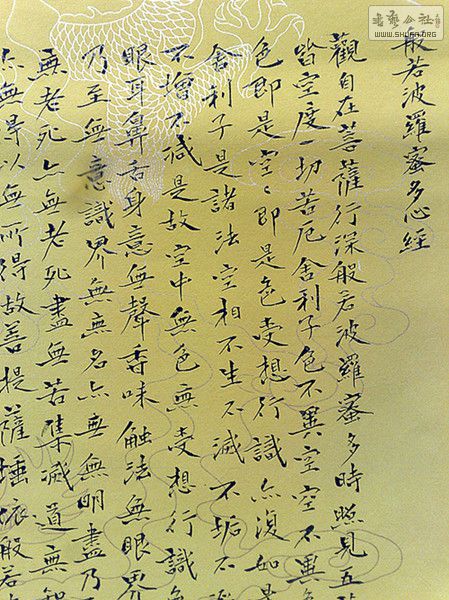 书艺公社
WWW.SHUFA.ORG
般若波羅蜜多心經
觀自在菩薩行深般若波羅蜜多時照見五
皆空度一切苦厄舍利子色不異空空不異色
色即是空〻即是色受想行識亦復如是
舍利子是諸法空相不生不滅不垢不
不增不减是故空中無色無受想行識
眼耳鼻舌身意無聲香味触法無眼界
乃至無意識界無無名亦無無明盡乃
無老死亦無老死盡無苦集滅道無智
亦無得以無所得故善提薩埵依般若